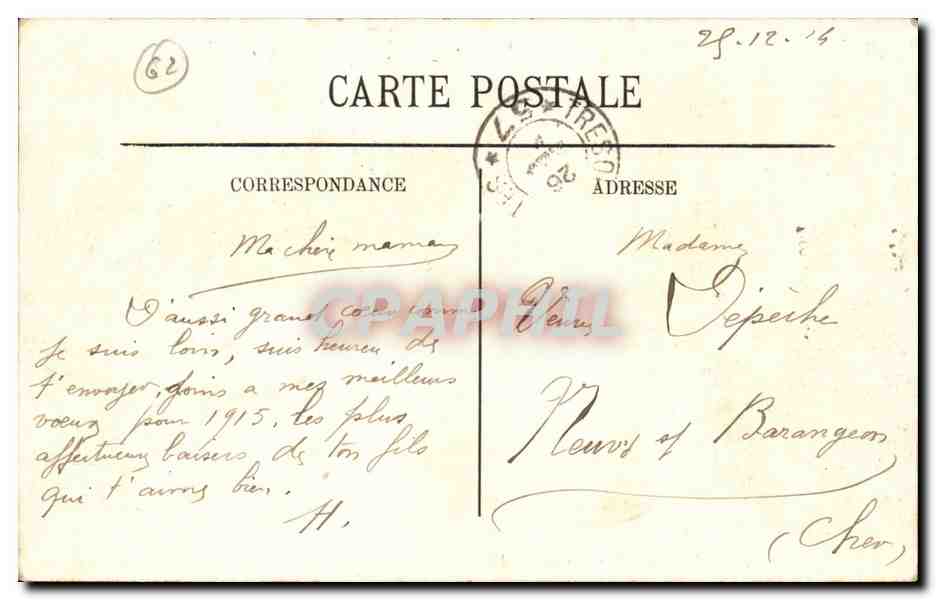 25.12.14
62
CARTE POSTALE
57 TRESO
26
CORRESPONDANCE
Ma chère maman
D'aussi grand coeur comme
je suis loin, suis heureu de
t'envoyer, joins a mes meilleurs
voeux pour 1915, les plus
affectueux baisers de ton fils
qui t'aime bien.
H.
ADRESSE
Madame
Veuve Dépêche
Neuvy s/ Barangeon
(Cher)
CPAPHIL